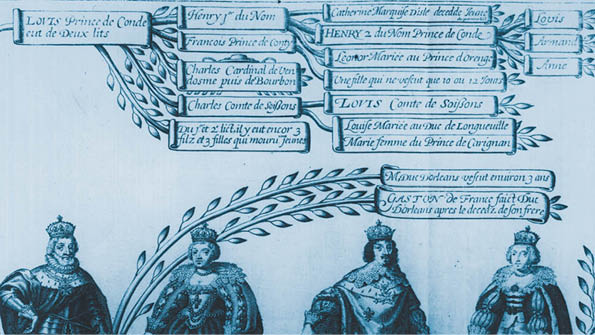 LOUIS Prince de Condé
eut de Deux lits
Henry 1er du Nom
François Prince de Conty
Charles Cardinal de Ven
dosme puis de Bourbon
Charles Comte de Soissons
Du 1er et 2 lict, il y eut encor 3
filz et 3 filles qui mouru Jeunes
Catherine Marquise D'isle decedée Jeune
HENRY 2 du Nom Prince de Condé
Leonor Mariée au Prince d'Orenge
Une fille qui ne vesqut que 10 ou 12 Jours
LOUIS Comte de Soissons
Louise Mariée au Duc de Longueville
Marie femme du Prince de Carignan
Louis
Armand
Anne
M. Duc Dorleans vesqut environ 3 ans
GASTON de France faict Duc
Dorleans apres le decedz de son frere